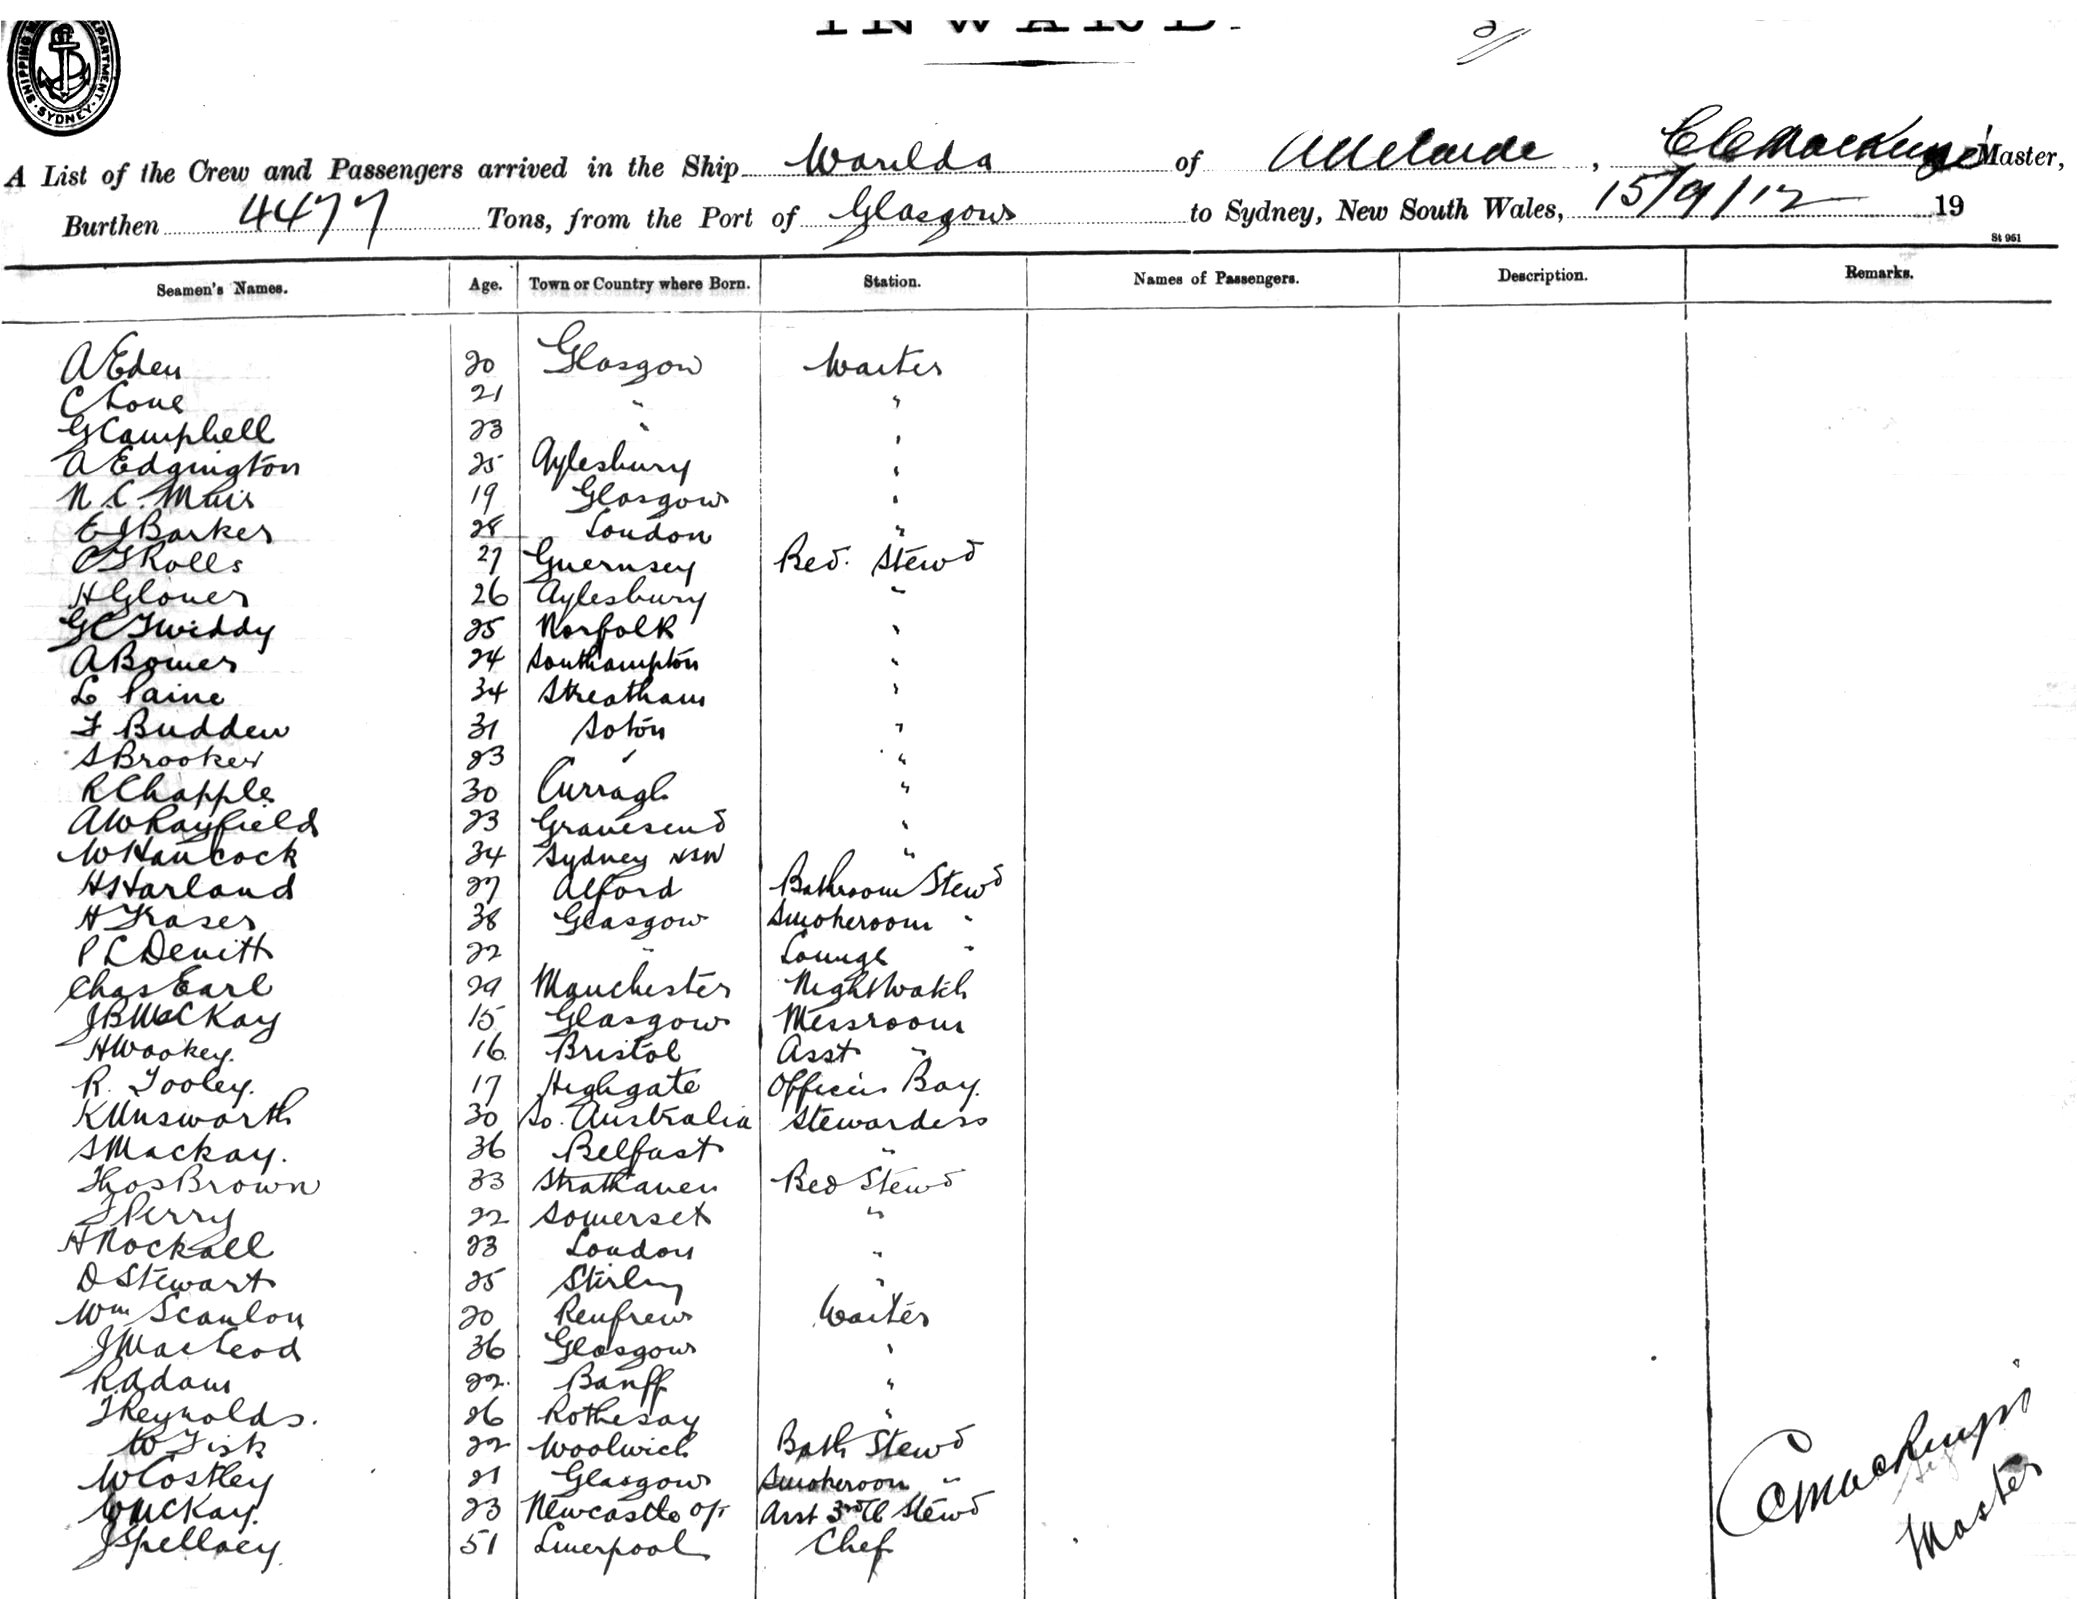 INWARD.
SHIPPING DEPARTMENT · SYDNEY ·
A List of the Crew and Passengers arrived in the Ship Warilda of Adelaide, Master,
Burthen 4477 Tons, from the Port of Glasgow to Sydney, New South Wales, 15/9/12 19
St 961
Seamen's Names. Age. Town or Country where Born. Station. Names of Passengers. Description. Remarks.
A Eden 20 Glasgow Waiter
C Love 21 " "
G Campbell 23 " "
A Edgington 25 Aylesbury "
N. C. Muir 19 Glasgow "
E J Barker 28 London "
Rolls 27 Guernsey Bed. Stewd
H Glover 26 Aylesbury "
G C Twiddy 25 Norfolk "
A Bomer 24 Southampton "
L Paine 34 Streatham "
F Budden 31 Soton "
S Brooker 23 " "
R Chapple 30 Curragh "
A W Rayfield 23 Gravesend "
W Hancock 34 Sydney NSW "
H S Harland 27 Alford Bathroom Stewd
H Fraser 38 Glasgow Smokeroom "
P L Devitt 22 " Lounge "
Chas Earl 29 Manchester Night Watch
J B McKay 15 Glasgow Messroom
H Wookey. 16. Bristol Asst "
R. Tooley. 17 Highgate Officers Boy.
K Unsworth 30 So. Australia Stewardess
S Mackay. 36 Belfast "
Thos Brown 33 Strathaven Bed Stewd
F Perry 22 Somerset "
H Nockall 23 London "
D Stewart 25 Stirling "
Wm Scanlon 20 Renfrew Waiter
J MacLeod 36 Glasgow "
R Adam 22. Banff "
J Reynolds. 26 Rothesay "
W Fisk 22 Woolwich Bath Stewd
W Costley 21 Glasgow Smokeroom "
W McKay. 23 Newcastle o/T Asst 3rd Cl Stewd
J Spellacy. 51 Liverpool Chef
Master